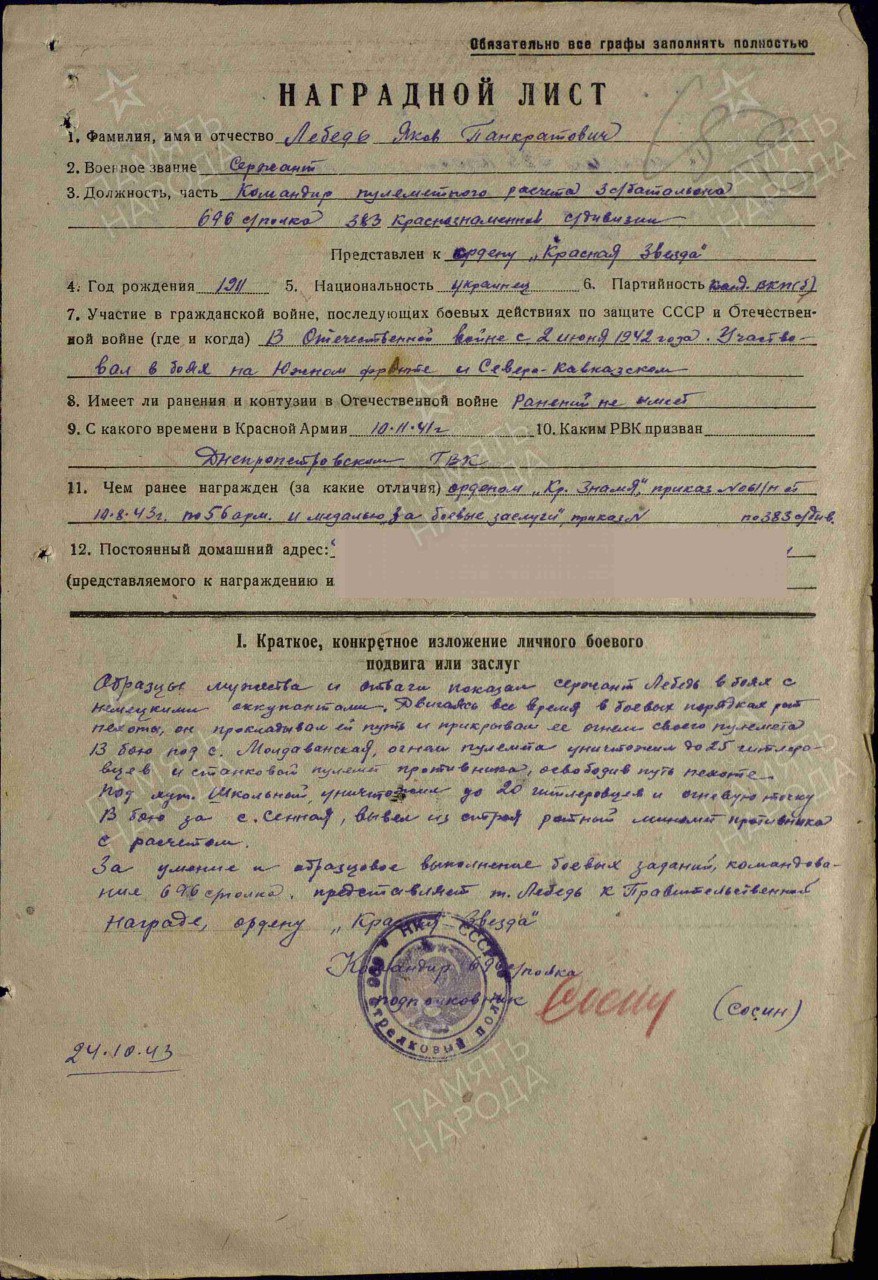 Обязательно все графы заполнять полностью
НАГРАДНОЙ ЛИСТ
1. Фамилия, имя и отчество Лебедь Яков Панкратович
2. Военное звание Сержант
3. Должность, часть Командир пулеметного расчета 3 с/батальона
696 с/полка 383 Краснознаменной с/дивизии
Представлен к ордену „Красная Звезда"
4. Год рождения 1911 5. Национальность украинец 6. Партийность канд. ВКП(б)
7. Участие в гражданской войне, последующих боевых действиях по защите СССР и Отечествен-
ной войне (где и когда) В Отечественной войне с 2 июня 1942 года. Участво-
вал в боях на Южном фронте и Северо-Кавказском
8. Имеет ли ранения и контузии в Отечественной войне Ранений не имеет
9. С какого времени в Красной Армии 10.11.41г 10. Каким РВК призван
Днепропетровским ГВК
11. Чем ранее награжден (за какие отличия) орденом „Кр. Знамя", приказ № 61/н от
10.8.43г. по 56 арм. и медалью „За боевые заслуги" приказ N по 383 с/див.
12. Постоянный домашний адрес:
(представляемого к награждению и
I. Краткое, конкретное изложение личного боевого
подвига или заслуг
Образцы мужества и отваги показал сержант Лебедь в боях с
немецкими оккупантами. Двигаясь все время в боевых порядках рот
пехоты, он прокладывал ей путь и прикрывал ее огнем своего пулемета
В бою под с. Молдаванская, огнем пулемета уничтожил до 25 гитлеро-
вцев и станковой пулемет противника, освободив путь пехоте.
Под хут. Школьный, уничтожил до 20 гитлеровцев и огневую точку
В бою за с. Сенная, вывел из строя ротный миномет противника
с расчетом.
За умение и образцовое выполнение боевых заданий, командова-
ние 696 с/полка, представляет т. Лебедь к Правительственной
награде, ордену „Красная Звезда"
Командир 696 с/полка
подполковник Сосин (Сосин)
24.10.43
НКО СССР
696 стрелковый полк
ПАМЯТЬ НАРОДА